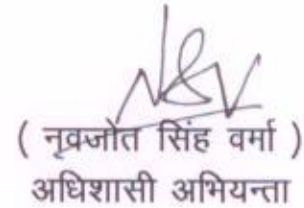 ( नवजोत सिंह वर्मा )
अधिशासी अभियन्ता